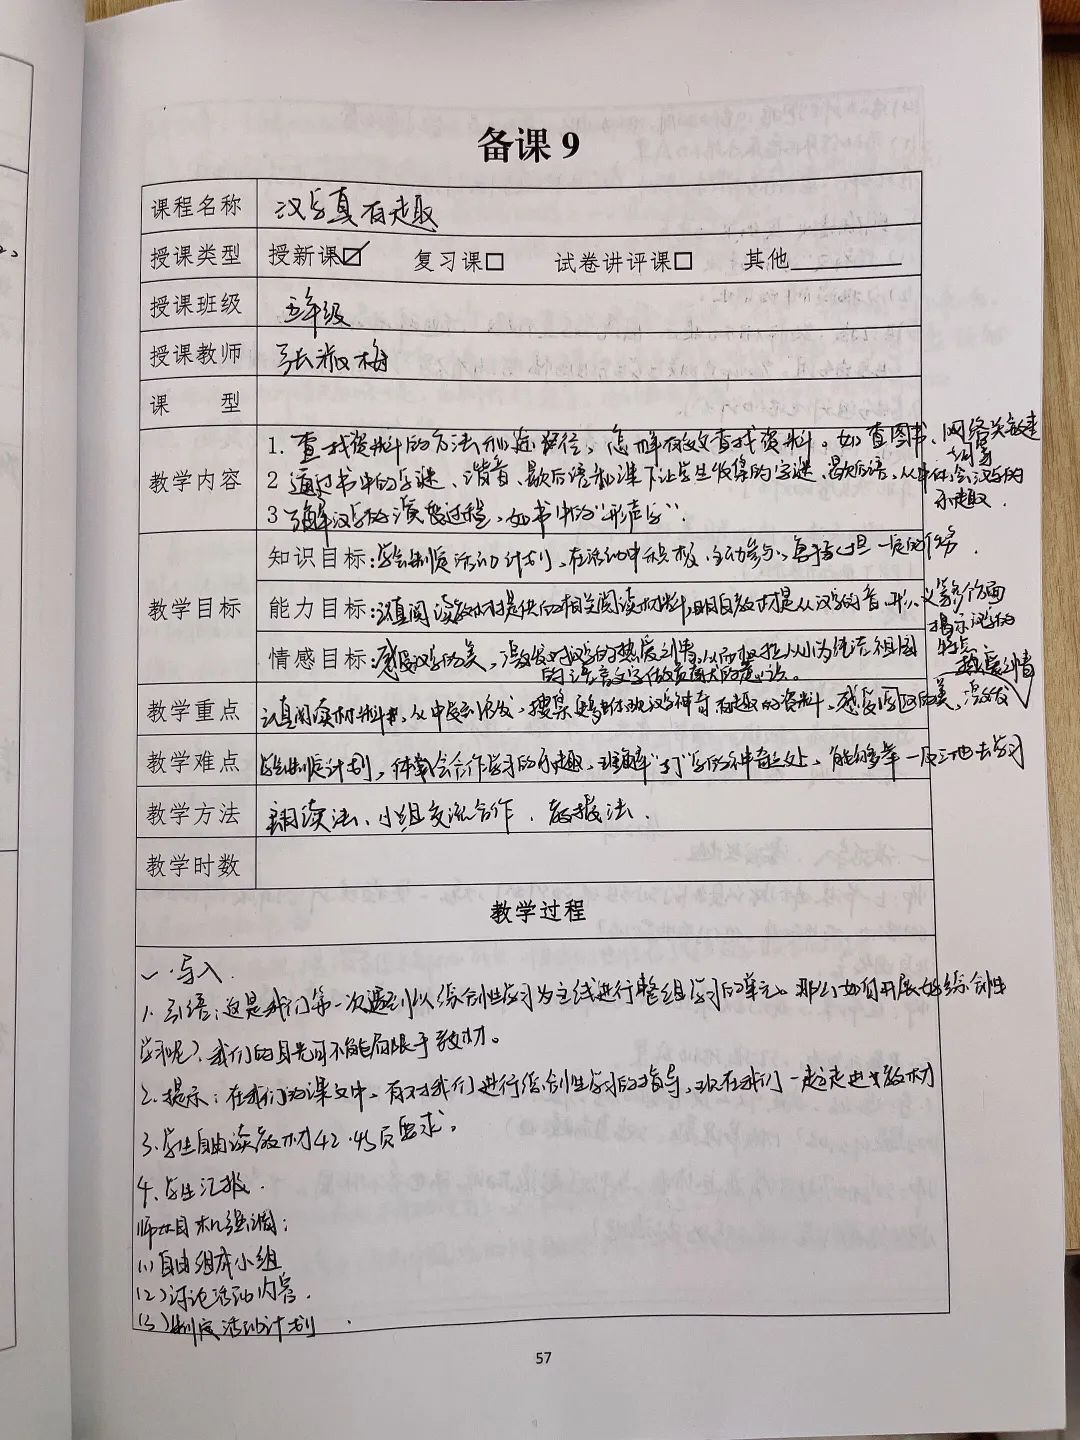 备课 9
课程名称 汉字真有趣
授课类型 授新课☑ 复习课□ 试卷讲评课□ 其他
授课班级 五年级
授课教师 张淑梅
课 型
教学内容
1. 查找资料的方法和途径，怎样有效查找资料。如查图书、网络
2 通过书中的字谜、谐音、歇后语和课下让学生收集的字谜、歇后语，从中体会汉字的
乐趣.
3 了解汉字的演变过程，如书中的“形声字”.
教学目标
知识目标：学会制定活动计划，在活动中积极、主动参与，勇于承担一定的任务.
能力目标：认真阅读教材提供的相关阅读材料，明白教材是从汉字的音、形、义等多个方面
揭示汉字的
特点.
情感目标：感受汉字的美，激发对汉字的热爱之情，从而树立从小为纯洁祖国
的语言文字做贡献的意识。
教学重点 认真阅读材料，从中受到启发，搜集更多体现汉字神奇有趣的资料，感受汉字的美，激发
热爱之情
教学难点 学会制定计划，体会合作学习的乐趣，理解汉字的神奇之处，能够举一反三地去学习
教学方法 阅读法、小组交流合作、
教学时数
教学过程
一. 导入.
1. 引语：这是我们第一次遇到以综合性学习为主线进行整组学习的单元。那么如何开展好综合性
学习呢？我们的目光可不能局限于教材。
2. 提示：在我们的课文中，有对我们进行综合性学习的指导，现在我们一起走进教材
3. 学生自由读教材42.45页要求。
4. 学生汇报.
师相机强调：
(1) 自由组成小组
(2) 讨论活动内容.
(3) 制定活动计划.
57